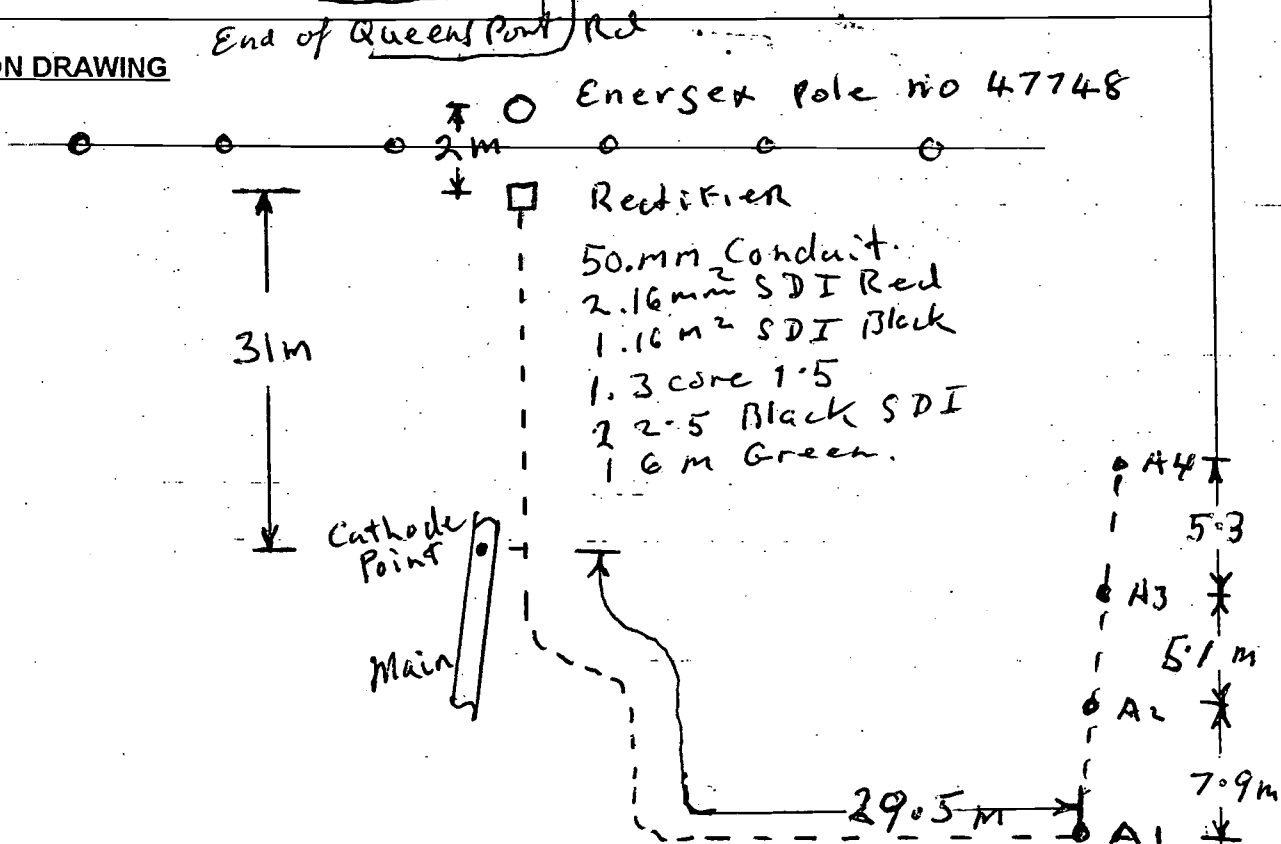 End of Queens Pont Rd
ON DRAWING
Energex pole no 47748
2m
Rectifier
50.mm Conduit.
2.16mm² SDI Red
1.16 m² SDI Black
31m
1. 3 core 1.5
2 2.5 Black SDI
1 6 m Green.
A4
5.3
Cathode
Point
A3
5.1 m
Main
A2
7.9m
29.5 m
A1